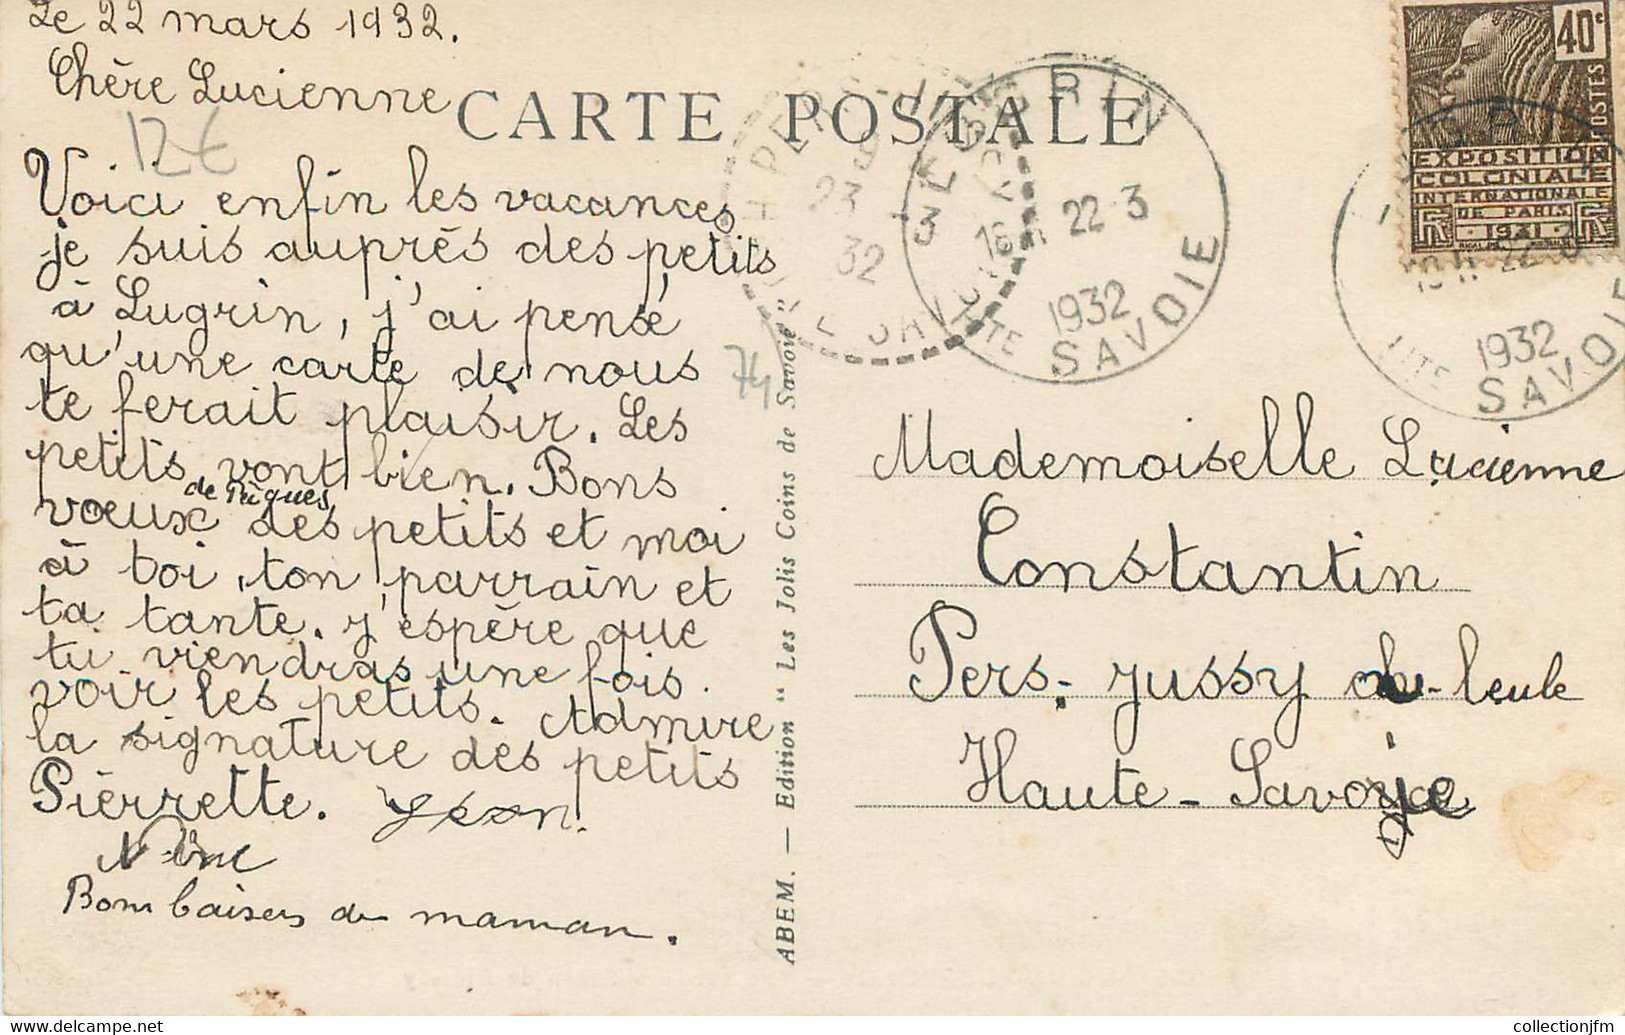 Le 22 mars 1932.
Chère Lucienne
12€
Voici enfin les vacances
je suis auprés des petits
à Lugrin, j'ai pensé
qu'une carte de nous
te ferait plaisir. Les
petits vont bien. Bons
de Pâques
vœux des petits et moi
à toi, ton parrain et
ta tante. J'espère que
tu viendras une fois
voir les petits. Admire
la signature des petits
Pierrette. Jean.
Bons baisers de maman.
CARTE POSTALE
74
ABEM. — Edition "Les Jolis Coins de Savoie"
LUGRIN
22-3
1932
HTE SAVOIE
23
32
40c
POSTES
EXPOSITION
COLONIALE
INTERNATIONALE
DE PARIS
1931
1932
HTE SAVOIE
Mademoiselle Lucienne
Constantin
Pers-Jussy
Haute-Savoie
collectionjfm